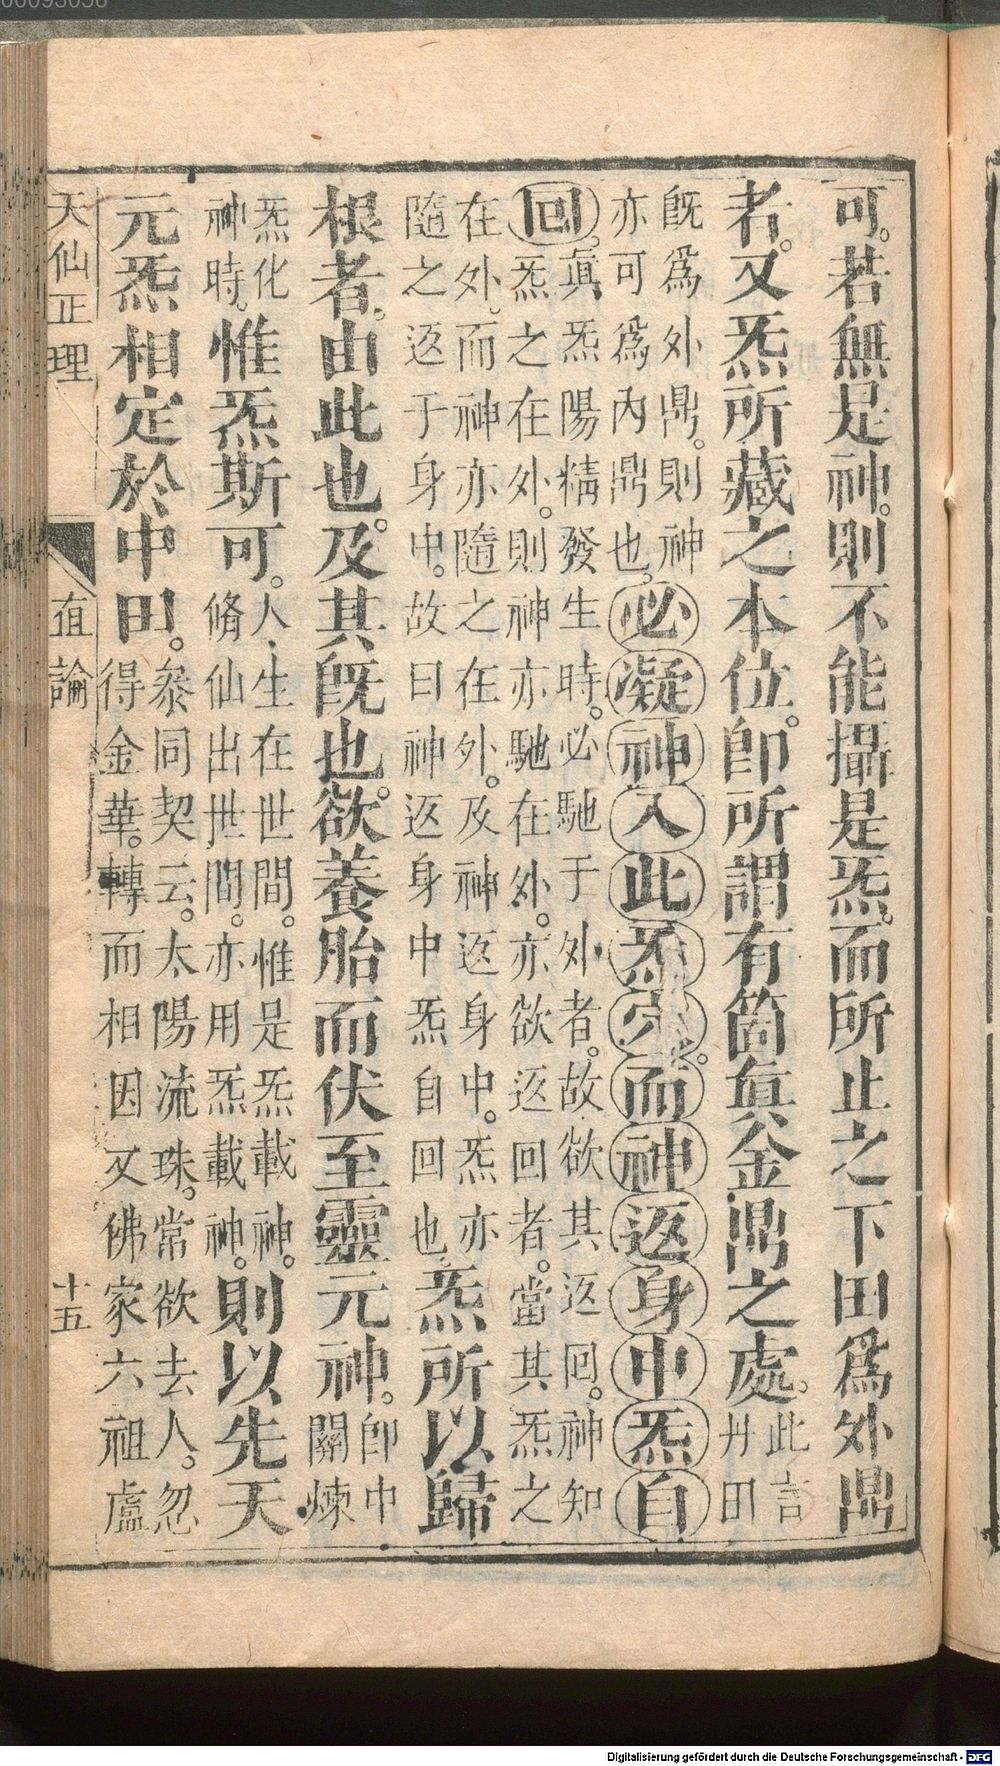 00093058
可。若無是神。則不能攝是炁。而所止之下田爲外鼎
者。又炁所藏之本位。卽所謂有箇眞金鼎之處。此言
丹田
旣爲外鼎。則神
亦可爲內鼎也。必凝神入此炁穴。而神返身中炁自
回。眞炁陽精發生時。必馳于外者。故欲其返回。神知
炁之在外。則神亦馳在外。亦欲返回者。當其炁之
在外。而神亦隨之在外。及神返身中。炁亦
隨之返于身中。故曰神返身中炁自回也。炁所以歸
根者。由此也。及其旣也。欲養胎而伏至靈元神。卽中
關煉
炁化
神時。惟炁斯可。人生在世間。惟是炁載神。
脩仙出世間。亦用炁載神。則以先天
元炁相定於中田。叅同契云。太陽流珠。常欲去人。忽
得金華。轉而相因又佛家六祖盧
天仙正理
直論
十五
Digitalisierung gefördert durch die Deutsche Forschungsgemeinschaft - DFG